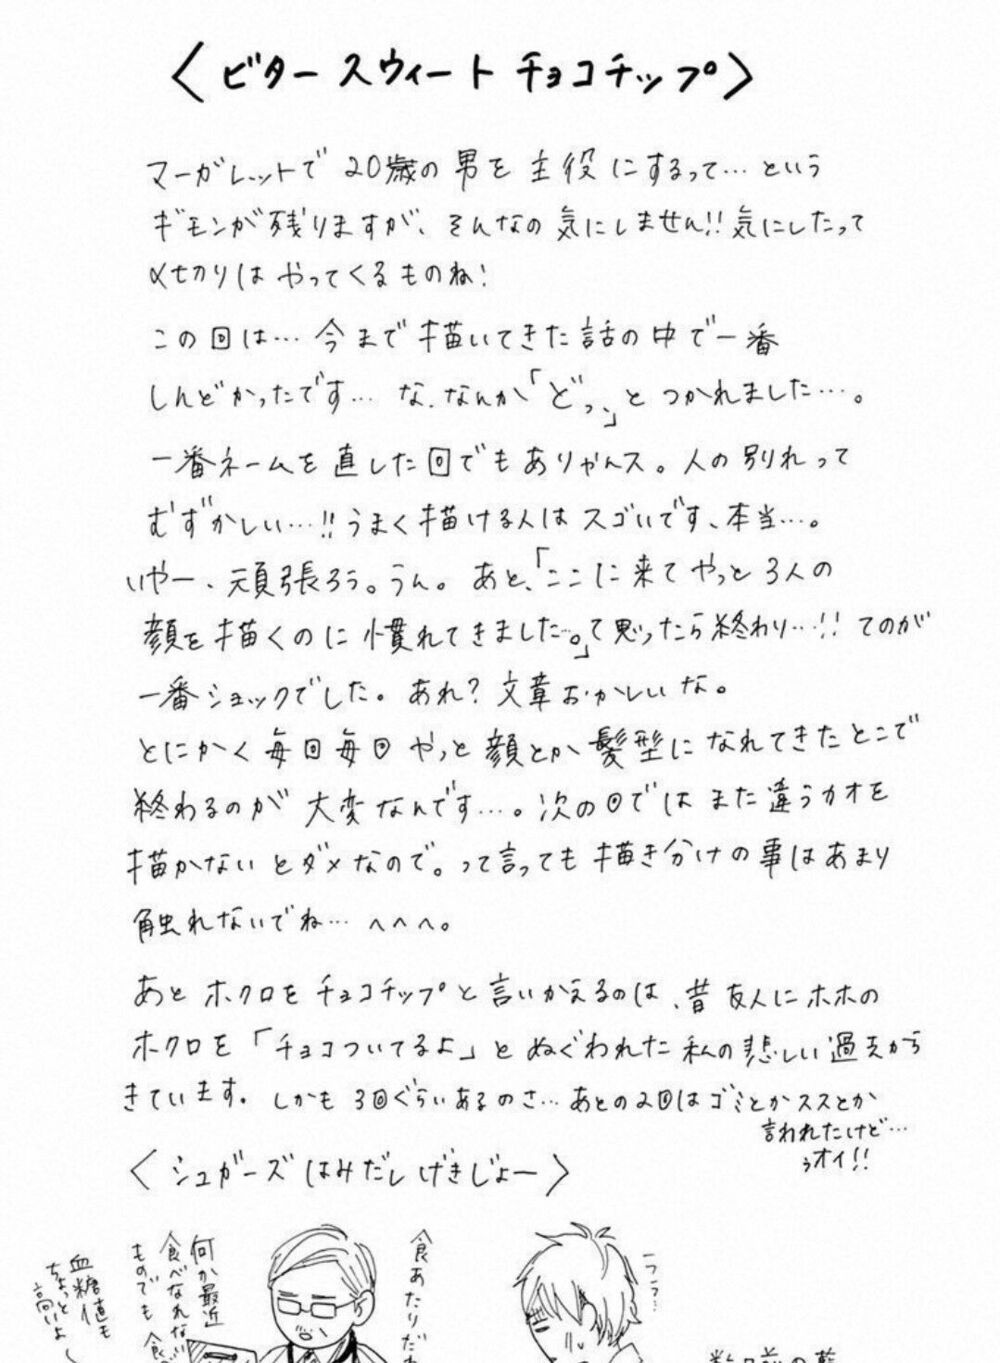 〈ビタースウィートチョコチップ〉
マーガレットで20歳の男を主役にするって…という
ギモンが残りますが、そんなの気にしません!!気にしたって
〆切りはやってくるものね!
この回は…今まで描いてきた話の中で一番
しんどかったです…な、なんか「どっ、」とつかれました…。
一番ネームを直した回でもありやんス。人の別れって
むずかしい…!!うまく描ける人はスゴいです、本当…。
いやー、頑張ろう。うん。あと、「ここに来てやっと3人の
顔を描くのに慣れてきました…。」て思ったら終わり…!!てのが
一番ショックでした。あれ?文章おかしいな。
とにかく毎回毎回やっと顔とか髪型になれてきたとこで
終わるのが大変なんです…。次の回ではまた違うカオを
描かないとダメなので。って言っても描き分けの事はあまり
触れないでね…へへへ。
あとホクロをチョコチップと言いかえるのは、昔友人にホホの
ホクロを「チョコついてるよ」とぬぐわれた私の悲しい過去から
きています。しかも3回ぐらいあるのさ…あとの2回はゴミとかススとか
言われたけど…
ぅオイ!!
〈シュガーズはみだしげきじょー〉
フラフラ…
食あたりだ
何か最近
食べなれない
ものでも食
血糖値も
ちょっと
高いよ